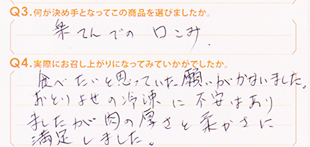 Q3.何が決め手となってこの商品を選びましたか。
楽てんでの口こみ
Q4.実際にお召し上がりになってみていかがでしたか。
食べたいと思っていた願いがかないました。
おとりよせの冷凍に不安はあり
ましたが肉の厚さと柔かさに
満足しました。